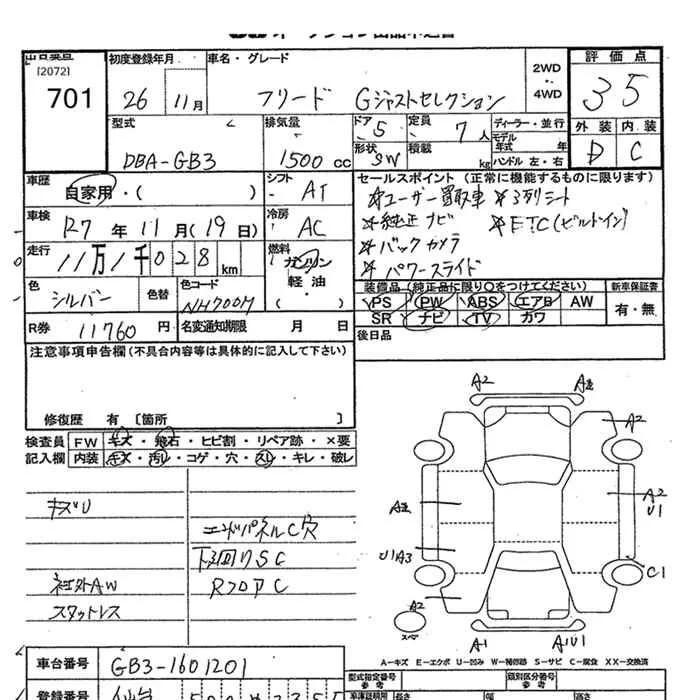 701
初度登録年月
26 11月
車名・グレード
フリード Gジャストセレクション
2WD
・
4WD
評価点
3 5
外装 内装
D C
型式
DBA-GB3
排気量
1500 cc
ドア 5
定員 7人
ディーラー・並行
モデル
年式 年
形状 SW
積載 kg
ハンドル 左・右
車歴
自家用・( )
シフト
AT
車検
R7年11月(19日)
冷房
AC
走行
11万1千028km
燃料
ガソリン
軽油・
( )
色
シルバー
色替
色コード
NH700M
R券 11760円
名変通知期限 月 日
セールスポイント (正常に機能するものに限ります)
*ユーザー買取車 *3列シート
*純正ナビ *ETC(ビルトイン)
*バックカメラ
*パワースライド
装備品 (純正品に限り○をつけてください)
PS PW ABS エアB AW
SR ナビ TV カワ
新車保証書
有・無
後日品
注意事項申告欄(不具合内容等は具体的に記入して下さい)
修復歴 有 [箇所 ]
検査員
記入欄
FW キズ・飛石・ヒビ割・リペア跡・×要
内装 キズ・汚レ・コゲ・穴・スレ・キレ・破レ
キズU
エンドパネルC穴
下回りSC
社外AW
RフロアC
スタットレス
A2
A2
A2
U1
U1A3
C1
A2
スペア
A1
A1U1
A-キズ E-エクボ U-凹み W-補修跡 S-サビ C-腐食 XX-交換済
車台番号 GB3-1601201
登録番号 仙台
型式指定番号
参考
類別区分番号
参考